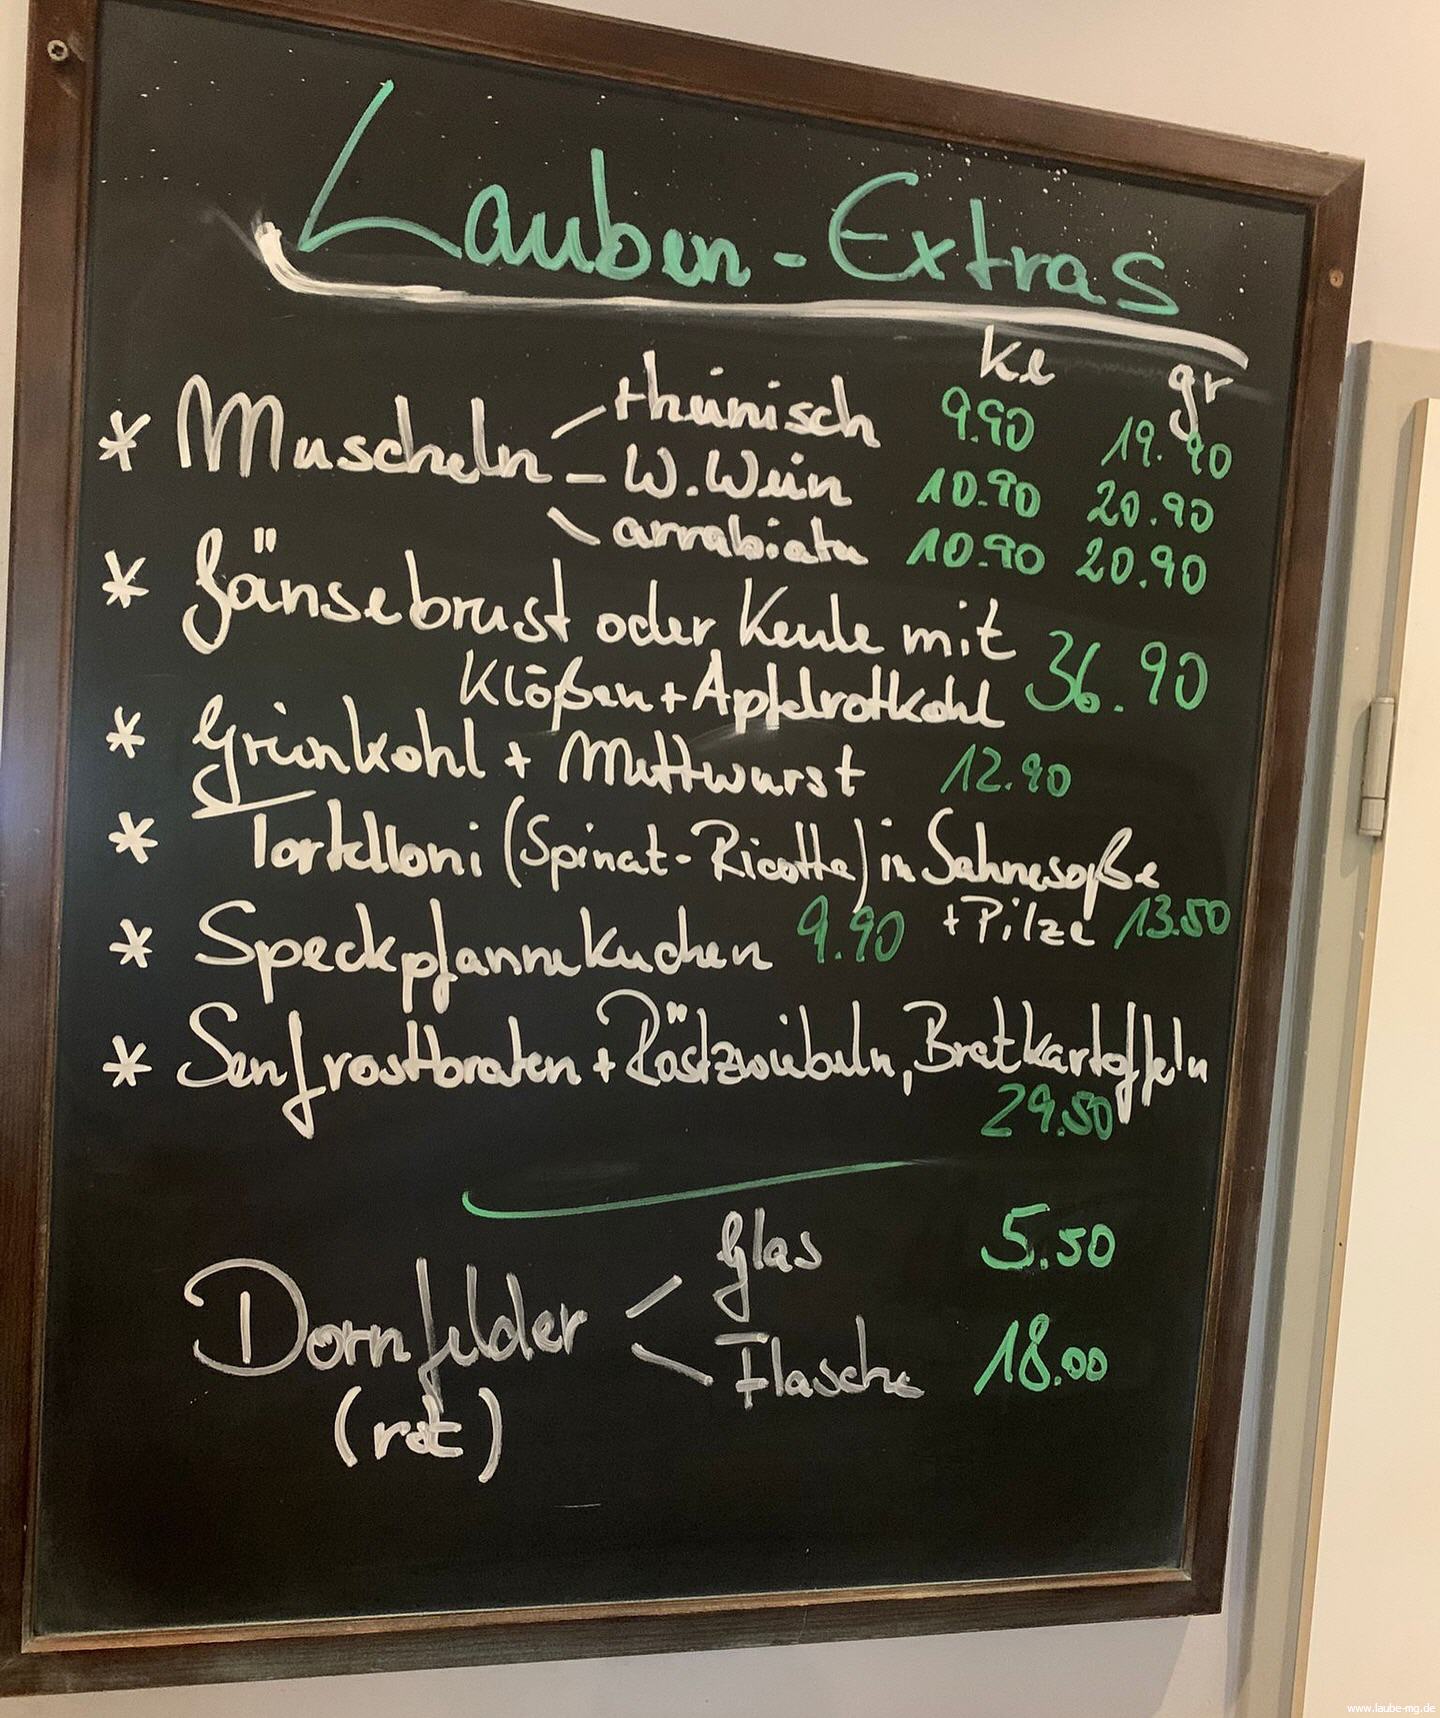 Lauben-Extras
kl gr
* Muscheln rheinisch 9.90 19.90
W.Wein 10.90 20.90
arrabiata 10.90 20.90
* Gänsebrust oder Keule mit
Klößen + Apfelrotkohl 36.90
* Grünkohl + Mettwurst 12.90
* Tortelloni (Spinat-Ricotta) in Sahnesoße
+ Pilze 13.50
* Speckpfannekuchen 9.90
* Senfrostbraten + Röstzwiebeln, Bratkartoffeln
29.50
Dornfelder Glas 5.50
Flasche 18.00
(rot)
www.laube-mg.de